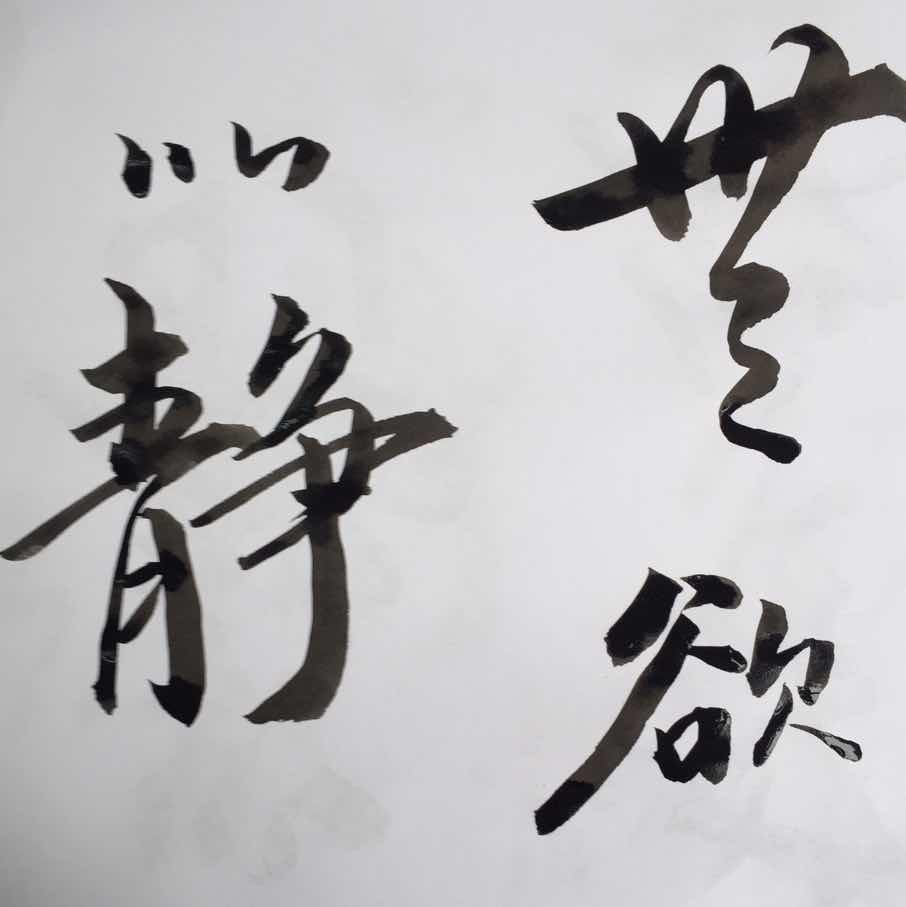 無欲
以静